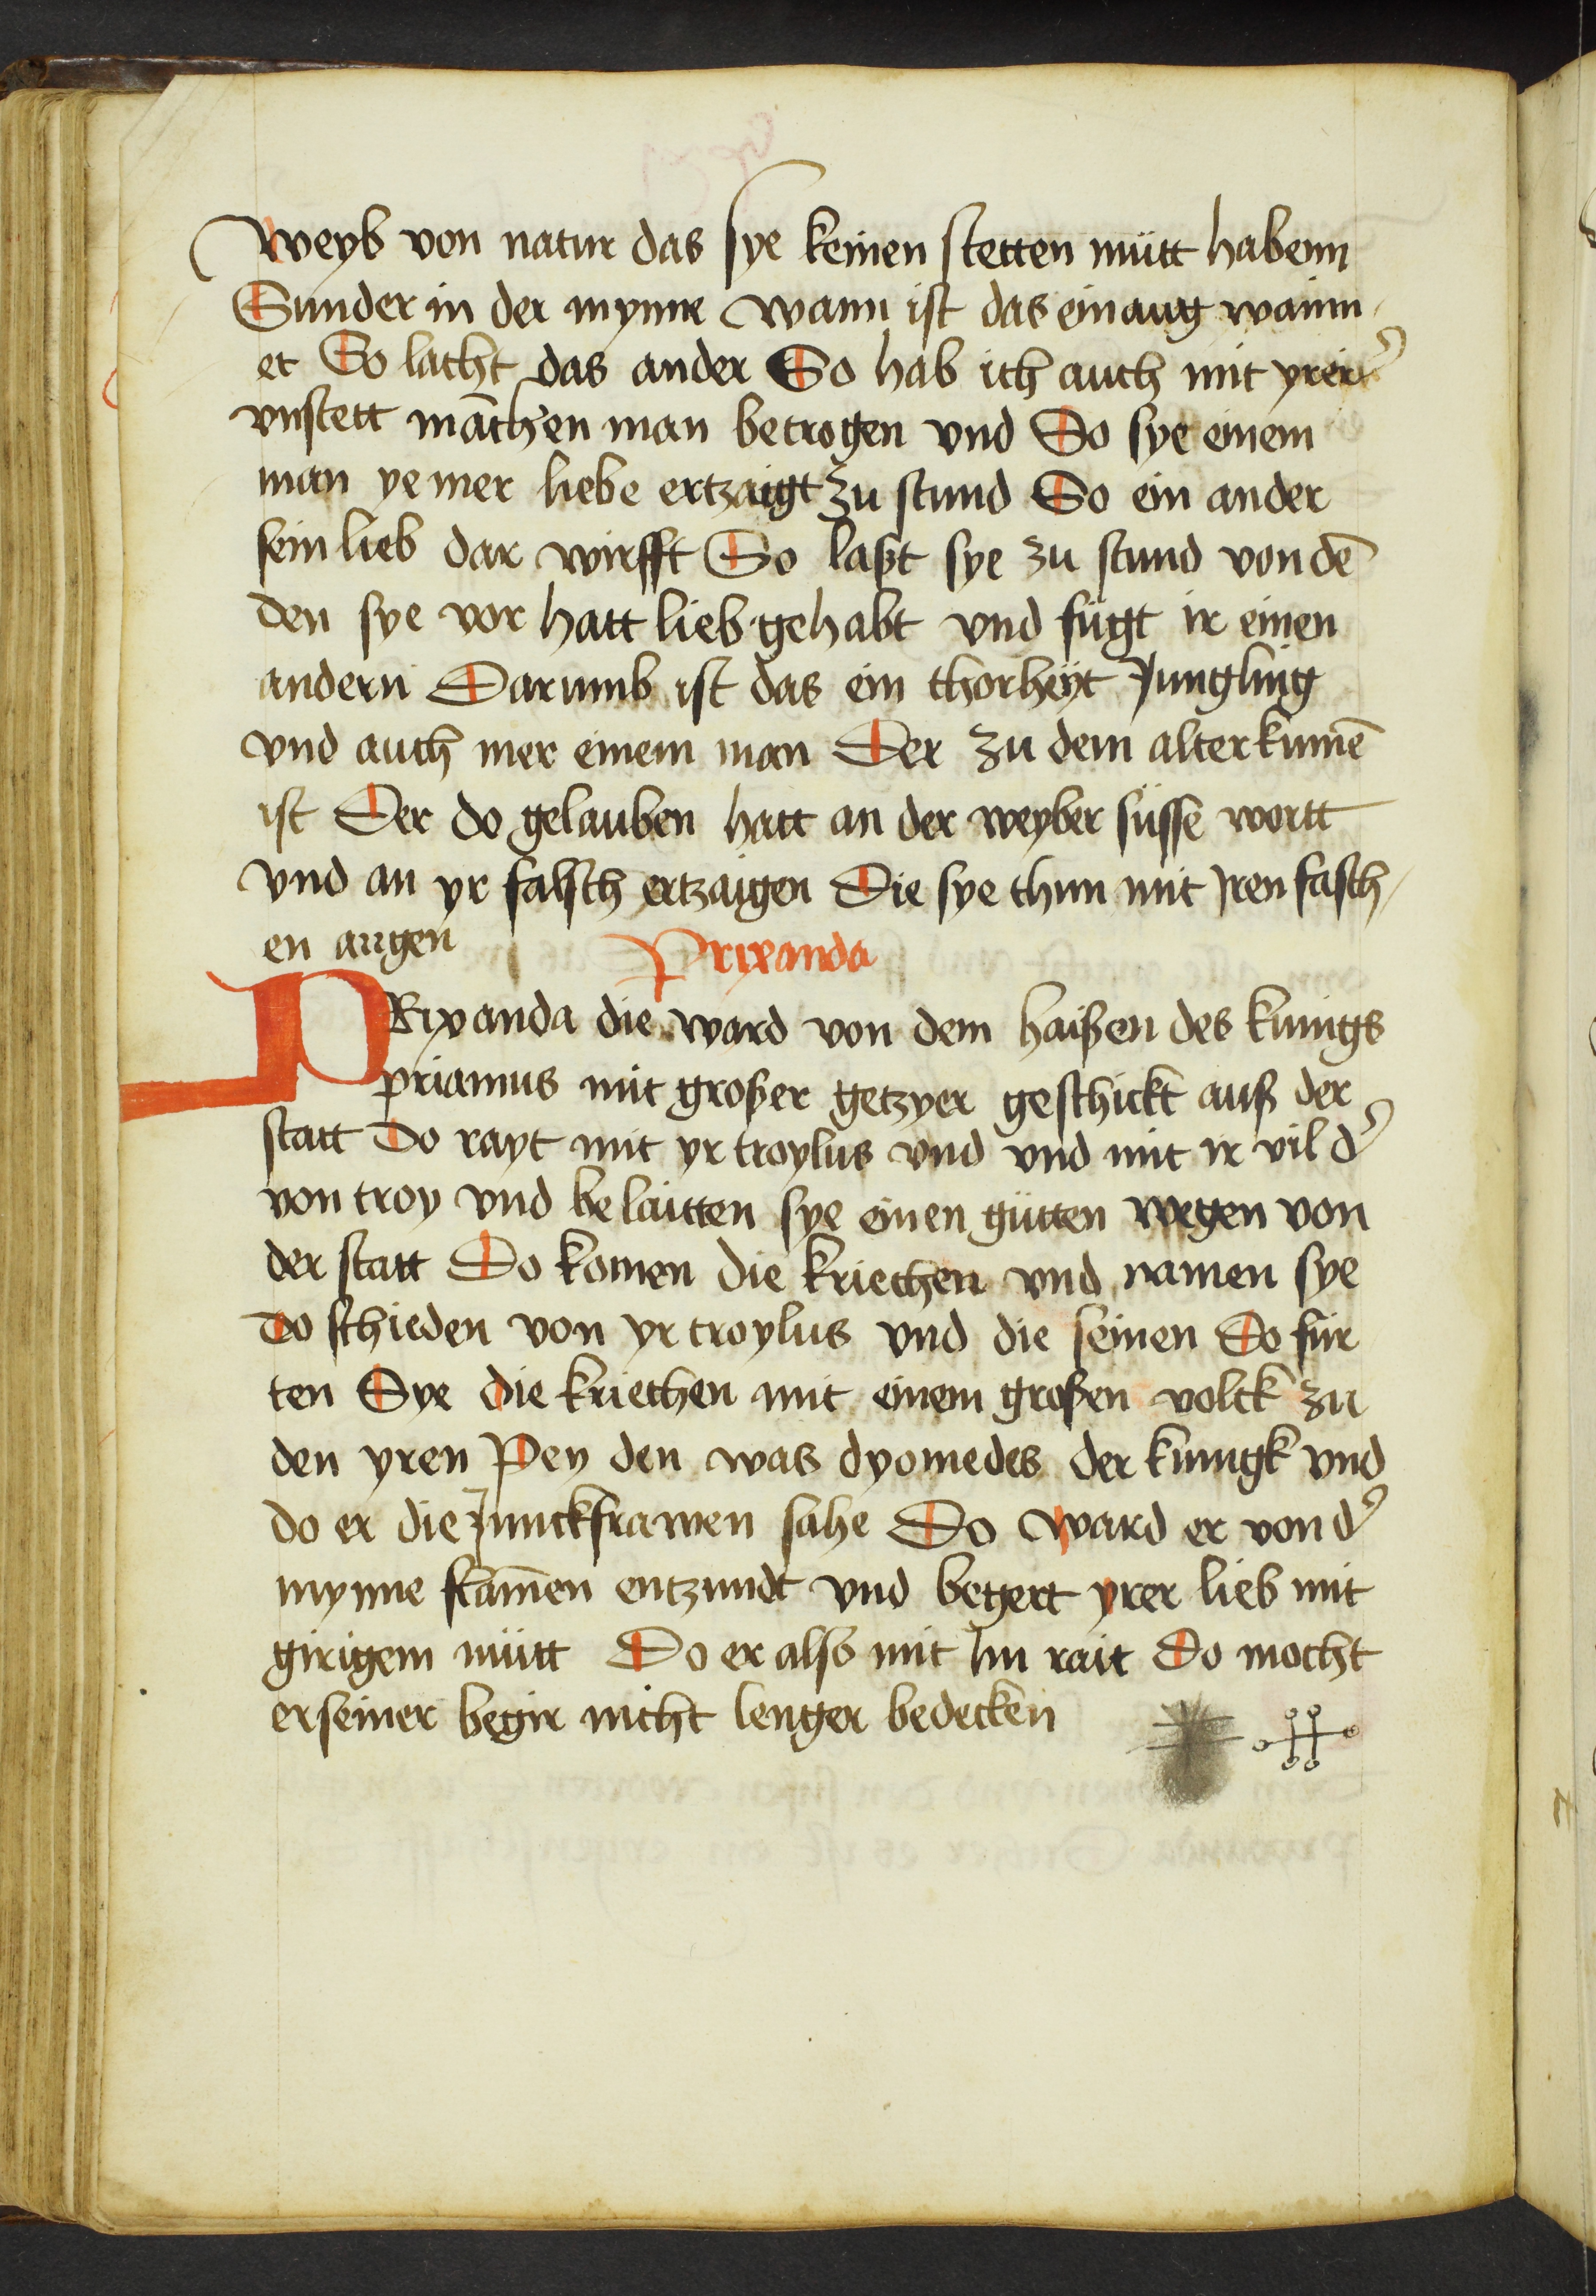 Weyb von natur das sye keinen stetten mütt habenn
Sunder in der mynne wann ist das ein aug wainn
et So lacht das ander So hab ich auch mit yrer
vnstett mãchen man betrogen vnd So sye einem
man ye mer liebe ertzaigt zu stund So ein ander
sein lieb dar wirfft So laßt sye zu stund von dẽ
den sye vor hatt lieb gehabt vnd fügt ir einen
andern Darumb ist das ein thorheÿt Jungling
vnd auch mer einem man Der zu dem alter kumẽ
ist Der do gelauben hatt an der weyber süsse wortt
vnd an yr falsch ertzaigen Die sye thun mit Jren fasch
en augen
Prixanda
PRixanda die ward von dem haißen des kunigs
priamus mit großer getzyer geschickt auß der
statt Do rayt mit yr troylus vnd vnd mit ir vil d᾽
von troy vnd belaitten sye einen gütten wegen von
der statt Do komen die kriechen vnd namen sye
do schieden von yr troylus vnd die seinen Do für
ten Sye die kriechen mit einem großen volck zu
den yren Pey den was dyomedes der kunigk vnd
do er die Junckfrawen sahe Do ward er von d᾽
mynne flam̃en entzundt vnd begert yrer lieb mit
girigem mütt Do er also mit Im rait Do mocht
er seiner begir nicht lenger bedecken